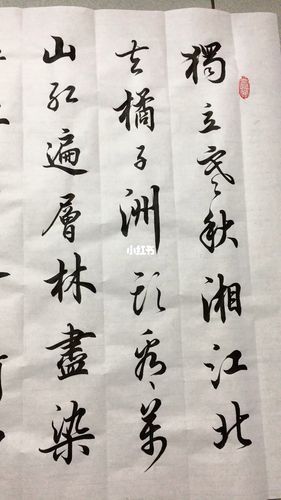 獨立寒秋湘江北
去橘子洲頭看萬
山紅遍層林盡染
小红书